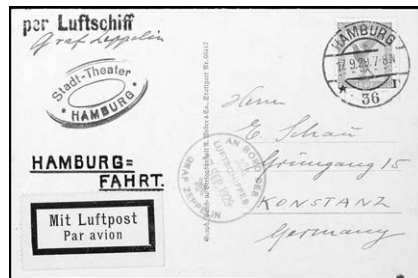 per Luftschiff
Graf Zeppelin
Stadt-Theater
* HAMBURG *
HAMBURG=
FAHRT.
Mit Luftpost
Par avion
HAMBURG
17.9.29. 7-8N
* 36 T
AN BORD DES
LUFTSCHIFFES
17. SEP. 1929
GRAF ZEPPELIN
Herrn
E. Schau
Grüngang 15
KONSTANZ
Germany